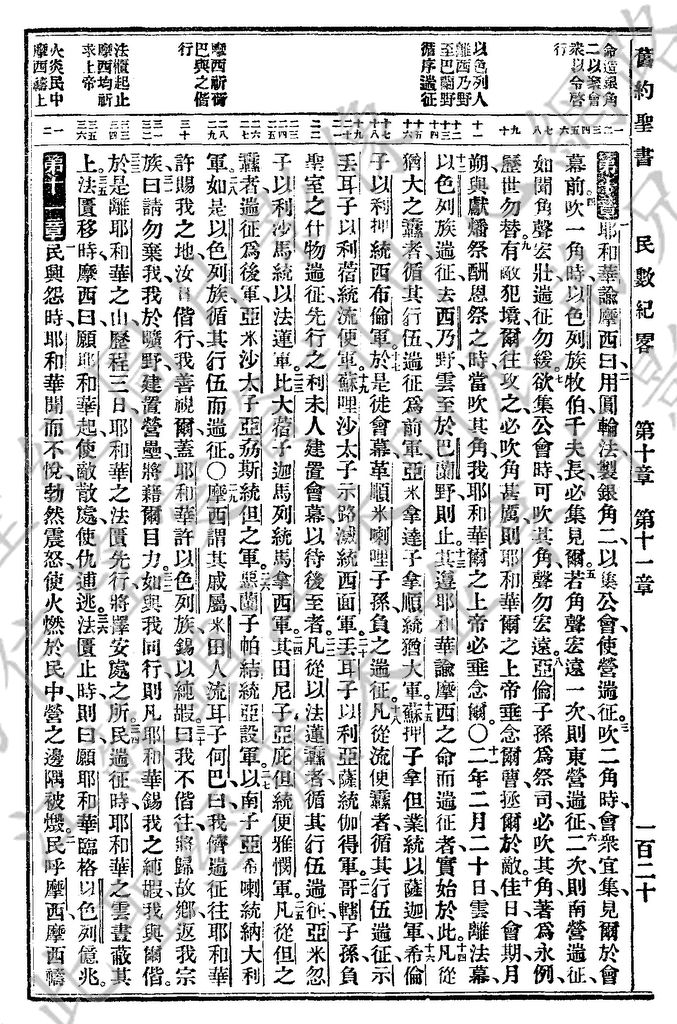 舊約聖書 民數紀畧 第十章 第十一章 一百二十
命造銀角
二以集會
衆以令啓
行
以色列人
離西乃野
至巴蘭野
循序遄征
摩西祈何
巴與之偕
行
法匱起止
摩西均祈
求上帝
火焱民中
摩西禱上
第十章耶和華諭摩西曰用圓輪法製銀角二以集公會使營遄征吹二角時會衆宜集見爾於會
幕前吹一角時以色列族牧伯千夫長必集見爾若角聲宏遠一次則東營遄征二次則南營遄征
如聞角聲宏壯遄征勿緩欲集公會時可吹其角聲勿宏遠亞倫子孫爲祭司必吹其角著爲永例
歷世勿替有敵犯境爾往攻之必吹角甚厲則耶和華爾之上帝垂念爾曹拯爾於敵佳日會期月
朔與獻燔祭酬恩祭之時當吹其角我耶和華爾之上帝必垂念爾〇二年二月二十日雲離法幕
以色列族遄征去西乃野雲至於巴蘭野則止其遵耶和華諭摩西之命而遄征者實始於此凡從
猶大之纛者循其行伍遄征爲前軍亞米拿達子拿順統猶大軍蘇押子拿但業統以薩迦軍希倫
子以利押統西布倫軍於是徙會幕革順米喇哩子孫負之遄征凡從流便纛者循其行伍遄征示
丟耳子以利蓿統流便軍蘇哩沙太子示路滅統西面軍丟耳子以利亞薩統伽得軍哥轄子孫負
聖室之什物遄征先行之利未人建置會幕以待後至者凡從以法蓮纛者循其行伍遄征亞米忽
子以利沙馬統以法蓮軍比大蓿子迦馬列統馬拿西軍其田尼子亞庇但統便雅憫軍凡從但之
纛者遄征爲後軍亞米沙太子亞哈斯統但之軍惡蘭子帕結統亞設軍以南子亞希喇統納大利
軍如是以色列族循其行伍而遄征〇摩西謂其戚屬米田人流耳子何巴曰我儕遄征往耶和華
許賜我之地汝且偕行我善視爾蓋耶和華許以色列族錫以純嘏曰我不偕往將歸故鄉返我宗
族曰請勿棄我我於曠野建置營壘將藉爾目力如與我同行則凡耶和華錫我之純嘏我與爾偕
於是離耶和華之山歷程三日耶和華之法匱先行將擇安處之所民遄征時耶和華之雲晝蔽其
上法匱移時摩西曰願耶和華起使敵散處使仇逋逃法匱止時則曰願耶和華臨格以色列億兆
第十一章民興怨時耶和華聞而不悅勃然震怒使火燃於民中營之邊隅被燬民呼摩西摩西禱